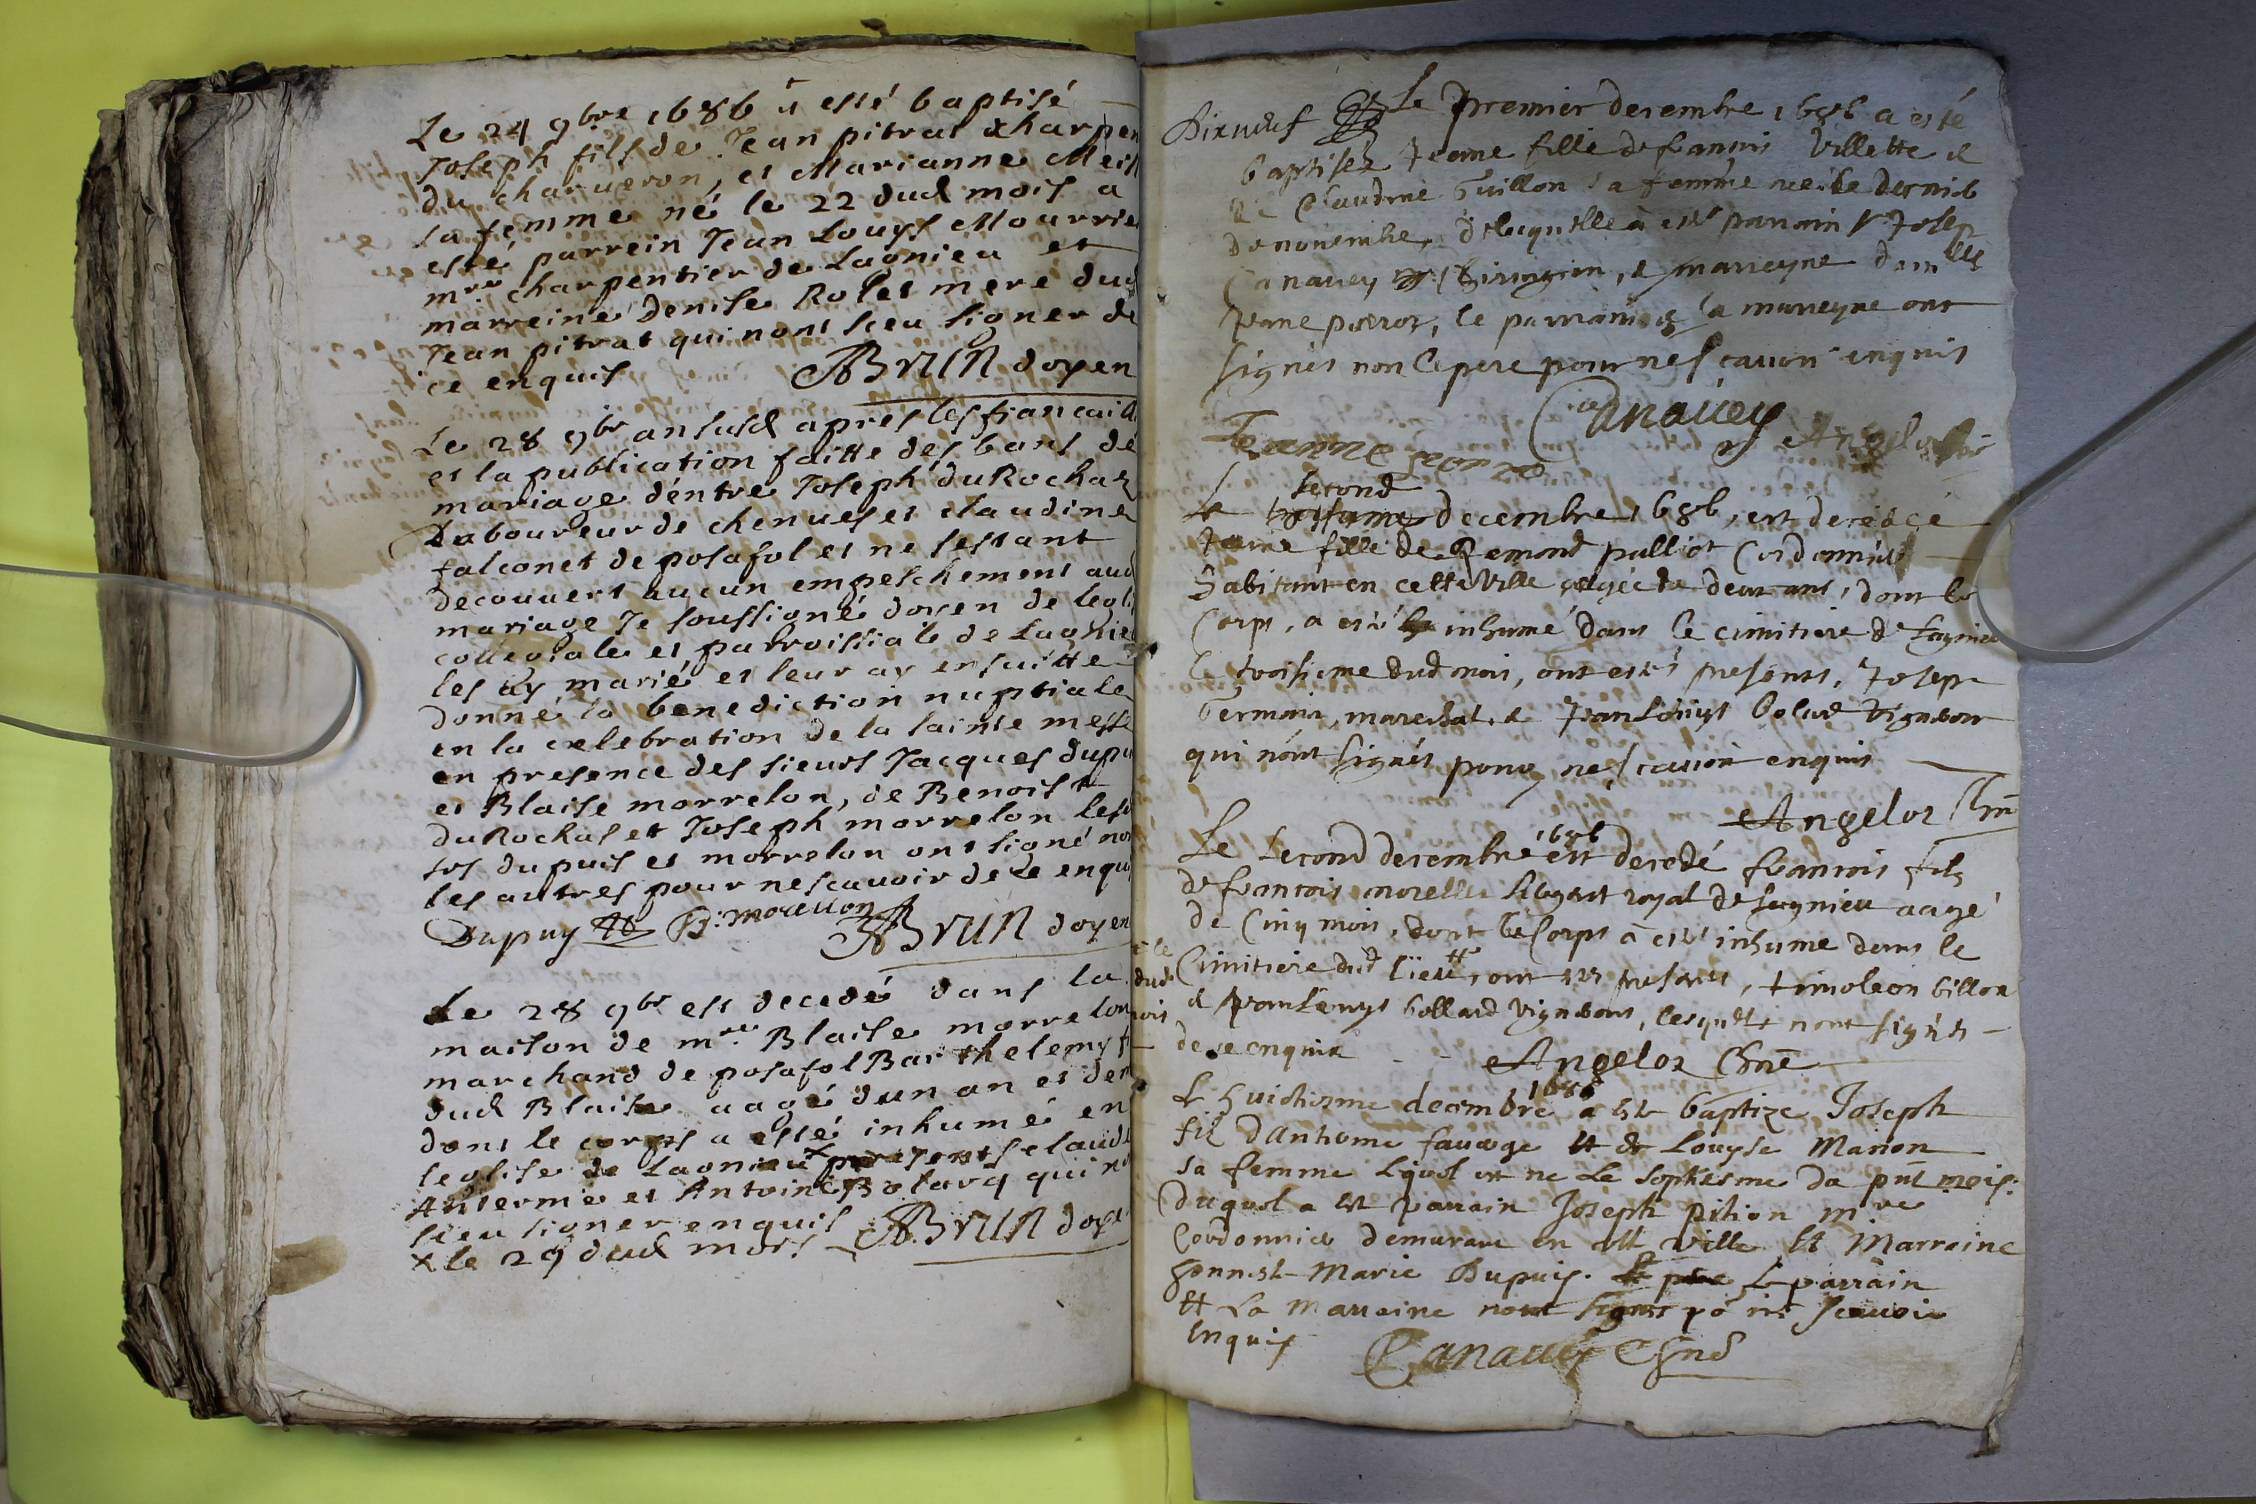 Le 24 9bre 1686 a esté baptisé
Joseph fils de Jean pitrat charpen
du charveron, et Marianne Meil
sa femme né le 22 dud mois a
esté parrein Jean Louys Mourrie
mre charpentier de Lagnieu et
marreine denise Rolet mere dud
Jean pitrat qui nont sceu signer de
ce enquis ABrun doyen
Le 28 9br an susd apres les fiancaill
et la publication faitte des bans de
mariage dentre Joseph duRochat
Laboureur de chenues et claudine
falconet de posafol et ne sestant
decouvert aucun empeschement aud
mariage Je soussigné doyen de legli
collegiale et parroissiale de Lagnie
les ay marié et leur ay ensuitte
donné la benediction nuptiale
en la celebration de la sainte messe
en presence des sieurs Jacques dupu
et Blaise morrelon, de Benoist
duRochas et Joseph morrelon lesd
srs dupuis et morrelon ont signé non
les autres pour ne scavoir de ce enquis
Dupuy B: morellon ABrun doyen
Le 28 9br est decedé dans la
maison de mre Blaise morrelon
marchand de posafol Barthelemy f
dud Blaise aagé dun an et dem
dont le corps a esté inhumé en
leglise de Lagnieu x presents claude
Antermie et Antoine Bolard qui no
sceu signer enquis ABrun doye
x le 29 dud mois
Dixneuf
Le premier decembre 1686 a esté
baptisée Jeanne fille de francois Villette et
de Claudine Guillon sa femme née le dernier
de novembre, de laquelle a esté parrain sr Josep
Canavey chirurgien, et marreyne damlle
Jeane perroz, le parrain et la marreyne ont
signés non le pere pour ne scavoir enquis
Canavey
Jeanne Angeloz
second
Le troisieme decembre 1686, est decedée
Jeane fille de Remond palliot Cordonnier
habitant en cette ville aagée de deux ans, dont le
Corps, a esté inhumé dans le cimitiere de Lagnieu
le troisieme dud mois, ont estés presents, Joseph
Germain, mareschal, et Jean Louys Bolard Vigneron
qui n'ont signés pour ne scavoir enquis
Angeloz Chne
Le second decembre 1686 est decedé francois fils
de francois morellu sergent royal de Lagnieu aagé
de Cinq mois, dont le Corps a esté inhumé dans le
Cimitiere dud lieu, ont estés presents, timoleon billon
et Jean Louys bollard vignerons, lesquels nont signés
de ce enquis Angeloz Chne
à le
dud
mois
Le huictiesme decembre 1686 a este baptize Joseph
fil dAnthoine favage et de Louyse Manon
sa femme Lquel est ne Le septiesme du pnt mois:
Duquel a este parrain Joseph pition mre
Cordonnier demurant en cette ville Et Marraine
honneste Marie Dupuis. Le parrain
Et La Marraine nont signes po ne scavoir
Enquis Canavey Chne